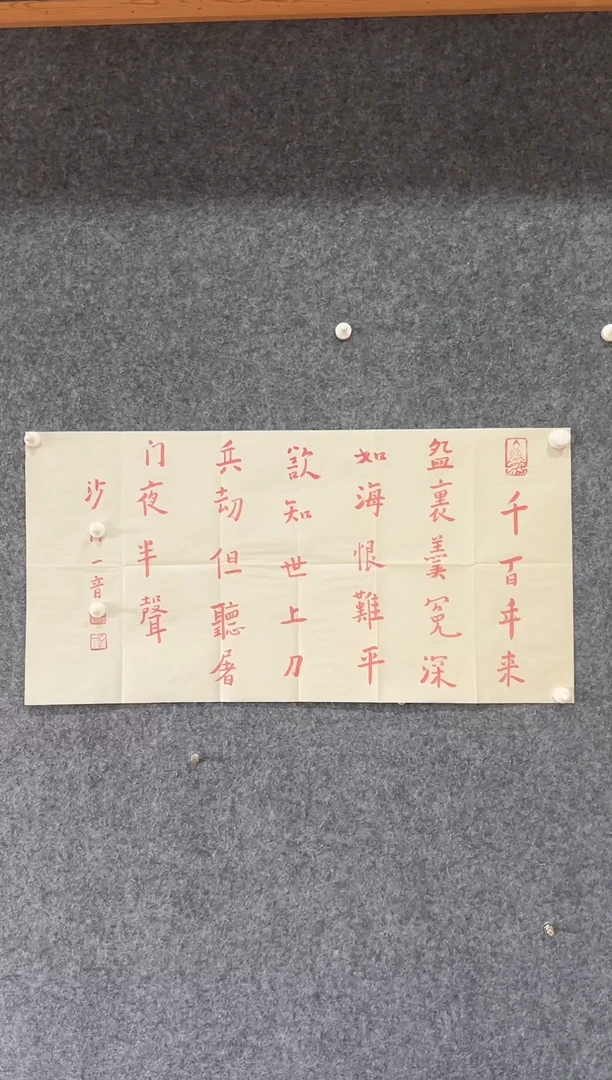 千百年来
盌裏羹冤深
如海恨難平
欲知世上刀
兵劫但聽屠
门夜半聲
沙一音